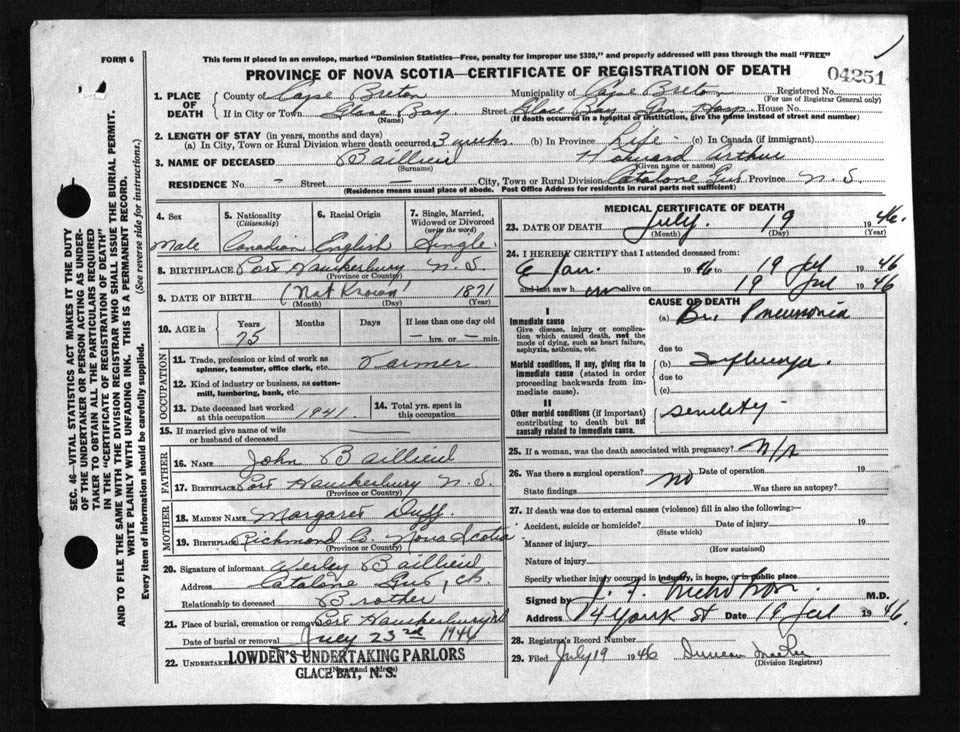 This form if placed in an envelope, marked "Dominion Statistics—Free, penalty for improper use $300," and properly addressed will pass through the mail "FREE"
FORM 6
PROVINCE OF NOVA SCOTIA—CERTIFICATE OF REGISTRATION OF DEATH
04251
1. PLACE OF DEATH
County of Cape Breton Municipality of Cape Breton Registered No.
(For use of Registrar General only)
If in City or Town Glace Bay Street Glace Bay Gen Hosp House No.
(Name) (If death occurred in a hospital or institution, give the name instead of street and number)
2. LENGTH OF STAY (in years, months and days)
(a) In City, Town or Rural Division where death occurred 3 weeks. (b) In Province Life (c) In Canada (if immigrant)
3. NAME OF DECEASED Baillieul Howard Arthur
(Surname) (Given name or names)
RESIDENCE No — Street City, Town or Rural Division Catalone Gut Province N. S.
(Residence means usual place of abode. Post Office Address for residents in rural parts not sufficient)
SEC. 46—VITAL STATISTICS ACT MAKES IT THE DUTY
OF THE UNDERTAKER OR PERSON ACTING AS UNDER-
TAKER TO OBTAIN ALL THE PARTICULARS REQUIRED
IN THE "CERTIFICATE OF REGISTRATION OF DEATH"
AND TO FILE THE SAME WITH THE DIVISION REGISTRAR WHO SHALL ISSUE THE BURIAL PERMIT.
WRITE PLAINLY WITH UNFADING INK. THIS IS A PERMANENT RECORD.
Every item of information should be carefully supplied. (See reverse side for instructions.)
4. Sex 5. Nationality (Citizenship) 6. Racial Origin 7. Single, Married, Widowed or Divorced (write the word)
Male Canadian English Single.
8. BIRTHPLACE Port Hawkesbury N. S.
(Province or Country)
9. DATE OF BIRTH (Not Known) 1871
(Month) (Day) (Year)
10. AGE in Years Months Days If less than one day old
75 — hrs. or — min.
OCCUPATION
11. Trade, profession or kind of work as spinner, teamster, office clerk, etc. Farmer
12. Kind of industry or business, as cotton-mill, lumbering, bank, etc.
13. Date deceased last worked at this occupation 1941. 14. Total yrs. spent in this occupation
15. If married give name of wife or husband of deceased
FATHER
16. NAME John Baillieul
17. BIRTHPLACE Port Hawkesbury N. S.
(Province or Country)
MOTHER
18. MAIDEN NAME Margaret Duff.
19. BIRTHPLACE Richmond Co. Nova Scotia
(Province or Country)
20. Signature of informant Baillieul
Address Catalone Gut, C.B.
Relationship to deceased Brother
21. Place of burial, cremation or removal Port Hawkesbury N.S
Date of burial or removal July 23rd 1946
22. UNDERTAKER LOWDEN'S UNDERTAKING PARLORS
(Name and address)
GLACE BAY, N. S.
MEDICAL CERTIFICATE OF DEATH
23. DATE OF DEATH July 19 1946.
(Month) (Day) (Year)
24. I HEREBY CERTIFY that I attended deceased from:
Jan. 1946 to 19 Jul 1946
and last saw him alive on 19 Jul 1946.
CAUSE OF DEATH
I
Immediate cause (a) Br. Pneumonia
Give disease, injury or complication which caused death, not the mode of dying, such as heart failure, asphyxia, asthenia, etc.
due to
Morbid conditions, if any, giving rise to immediate cause (stated in order proceeding backwards from immediate cause).
(b) Influenza.
due to
(c)
II
Other morbid conditions (if important) contributing to death but not causally related to immediate cause.
Senility
25. If a woman, was the death associated with pregnancy? N/A
26. Was there a surgical operation? no Date of operation 19
State findings Was there an autopsy?
27. If death was due to external causes (violence) fill in also the following:—
Accident, suicide or homicide? Date of injury 19
(State which)
Manner of injury
(How sustained)
Nature of injury
Specify whether injury occurred in industry, in home, or in public place
Signed by J. F. Nicholson M.D.
Address 14 York St Date 19 Jul 1946.
28. Registrar's Record Number
29. Filed July 19 1946 Duncan MacRae
(Division Registrar)